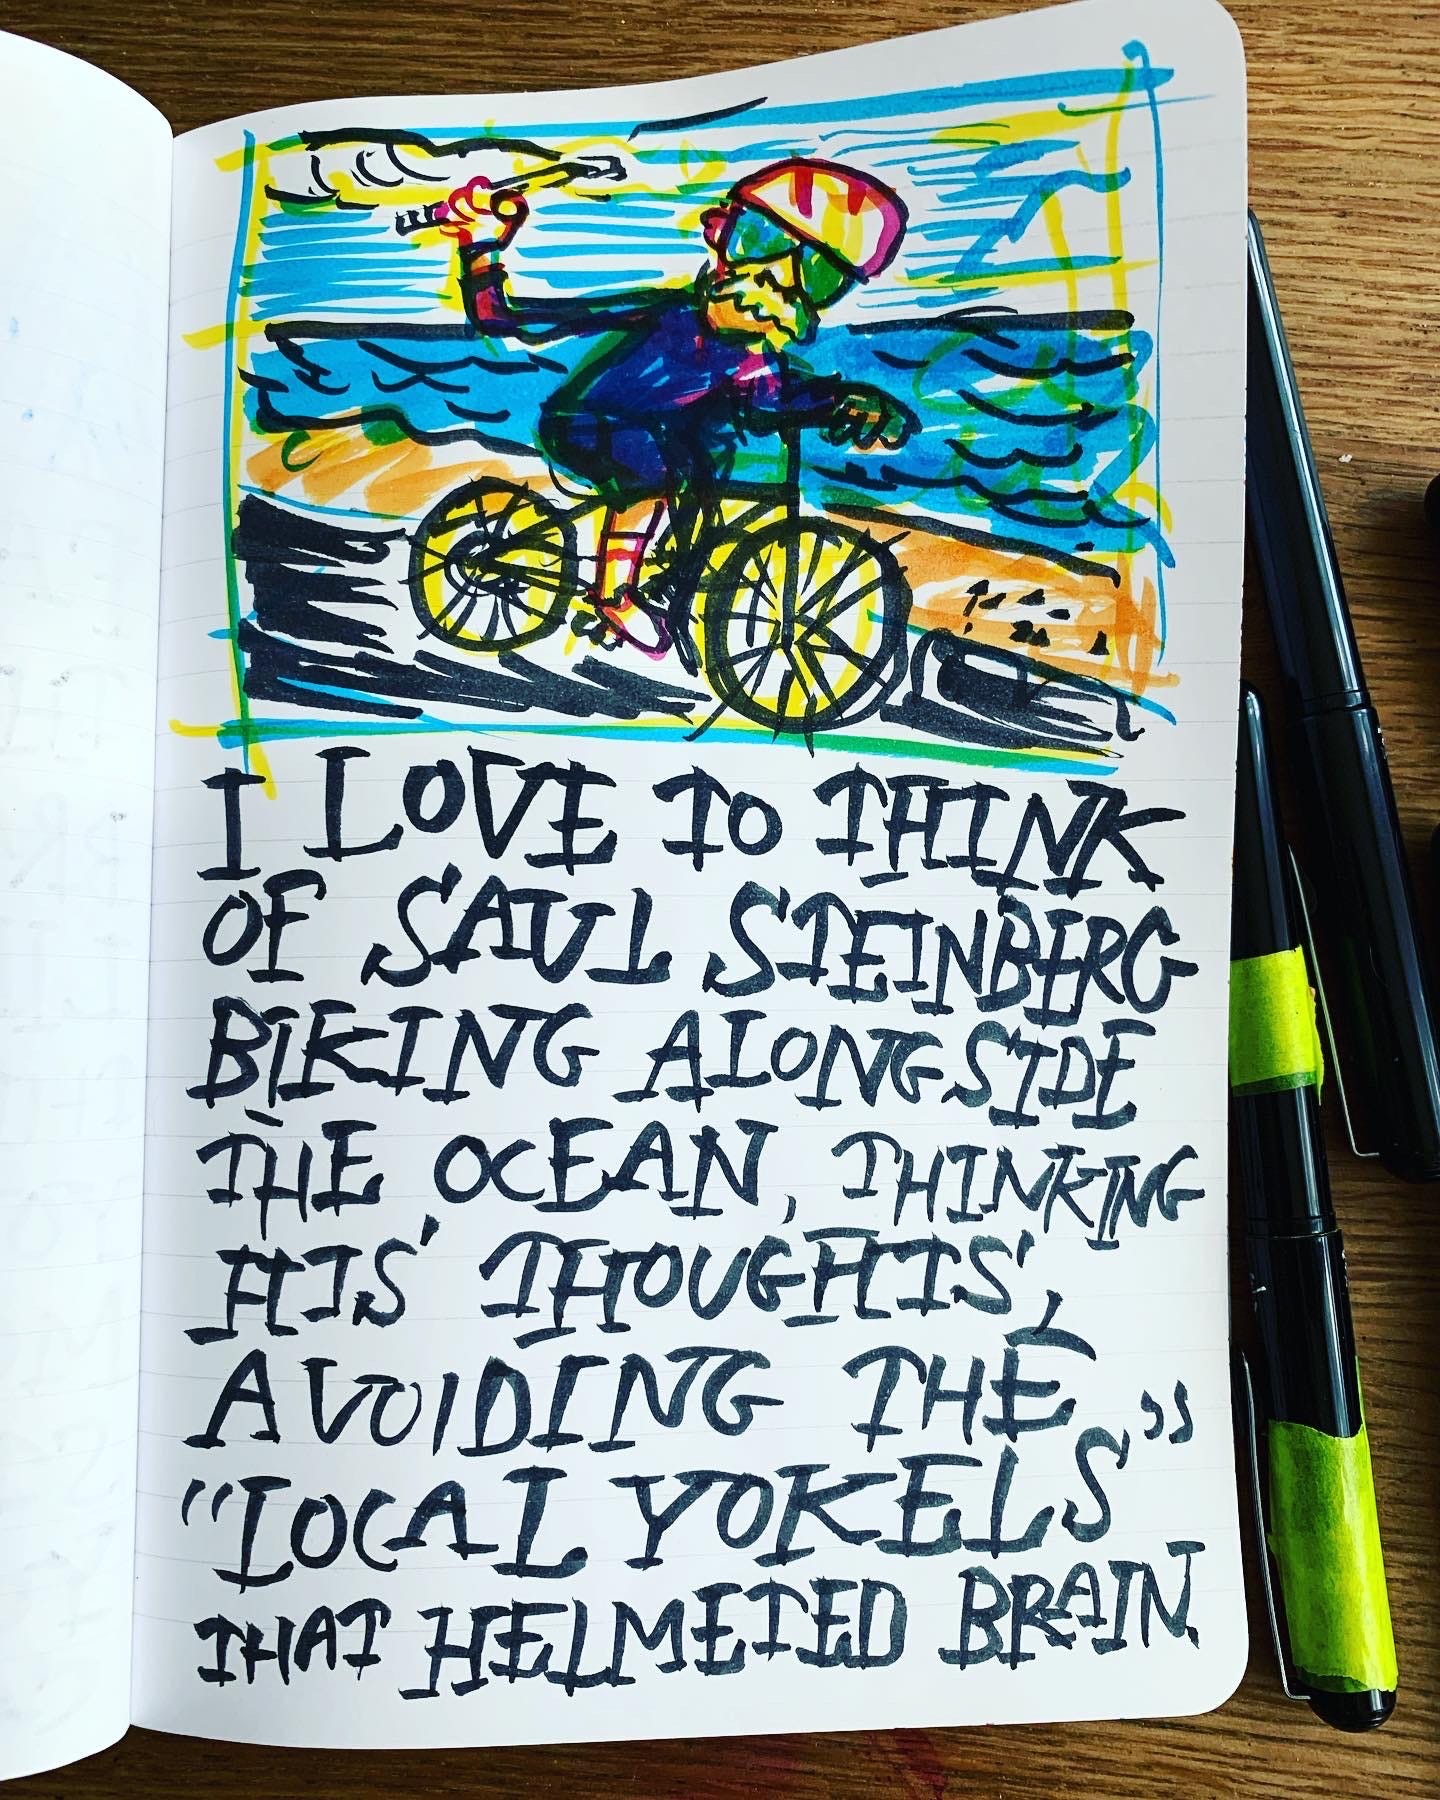 I LOVE TO THINK
OF SAUL STEINBERG
BIKING ALONGSIDE
THE OCEAN, THINKING
HIS' THOUGHTS',
AVOIDING THE
"LOCAL YOKELS"
THAT HELMETED BRAIN.